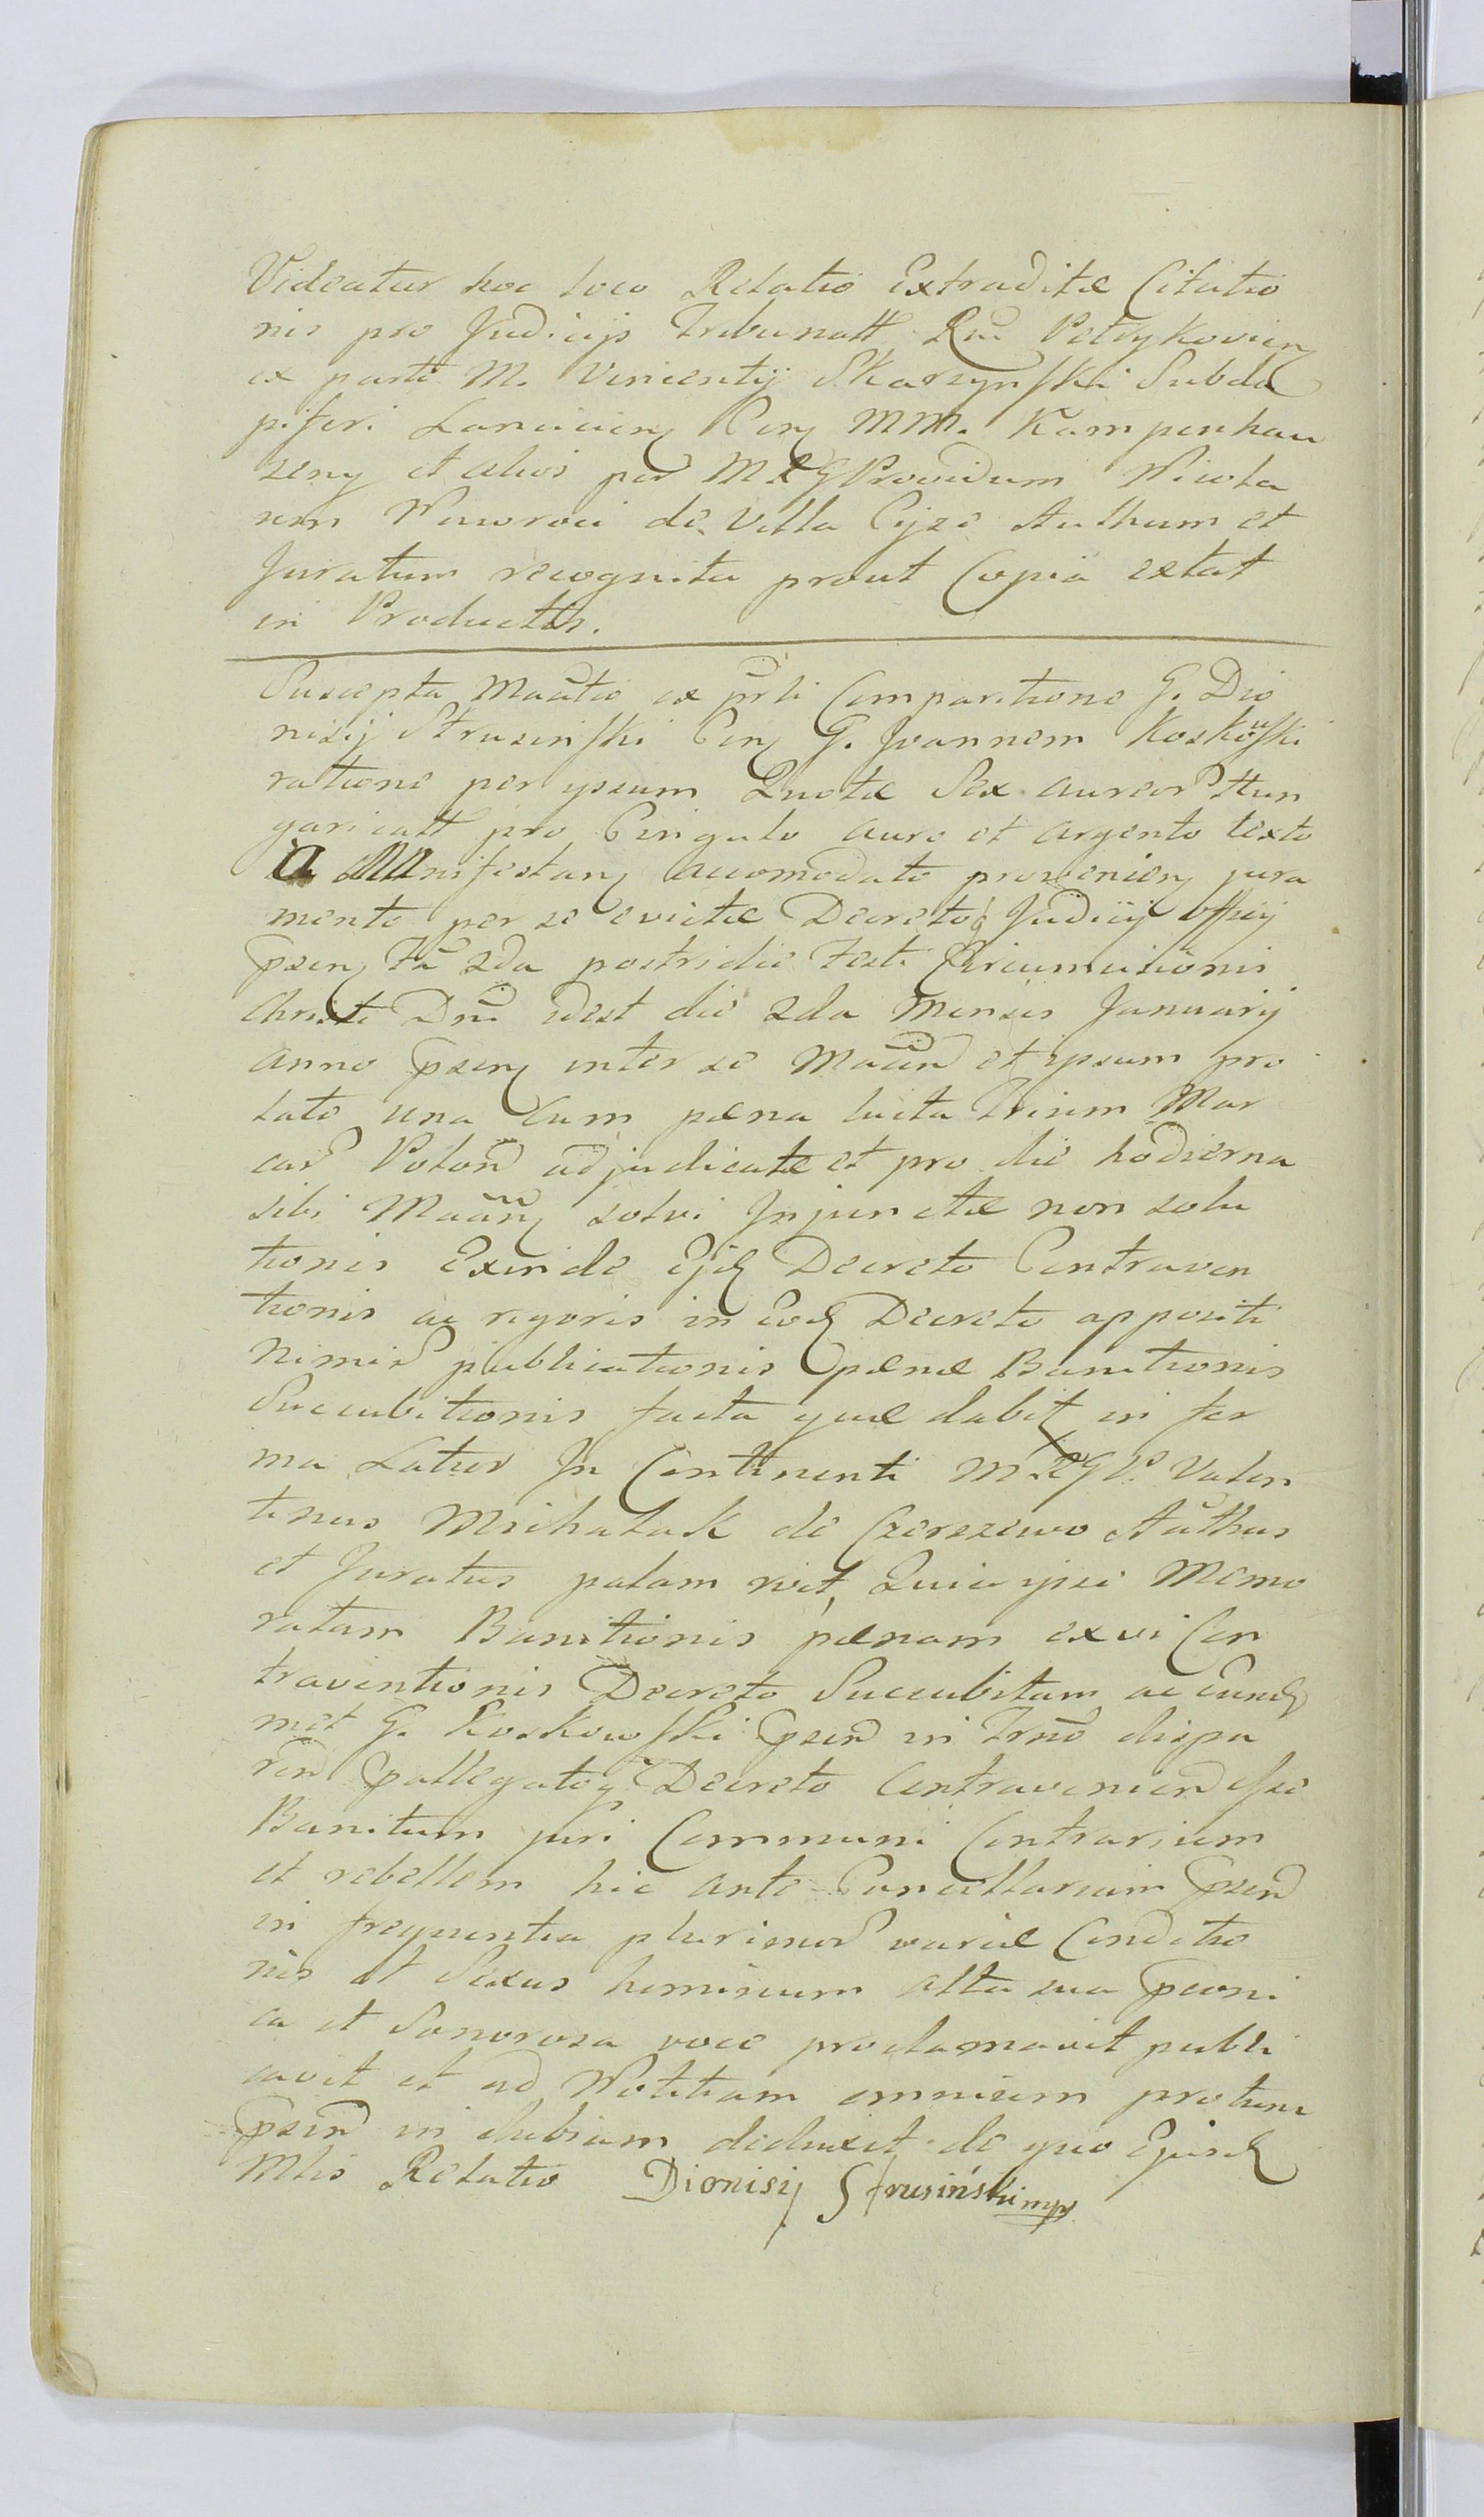 Videatur hoc loco Relatio Extraditæ Citatio
nis pro Judicijs Tribunatt Rnī Petrykovien
ex parte M. Vincentij Skarzynski Subda
piferi Lancicien Con MM. Kampenhau
zeny et alios per M&G Providum Nicola
um Waworoci de Villa Cyze Authum et
Juratum recognita prout Copia extat
in Productis.
Suscepta Maātio ex pr̄li Comparitione G. Dio
nisij Strusinski Con G. Joannem Koskowski
ratione per ipsum Quotæ Sex aureor Hun
garicatt pro Cingulo auro et argento texto
a Manifestan accomodato provenien jura
mento per se evictæ Decretoq Judicij Officij
psen Fā 2da postridie Festi Circumcisionis
Christi Dnī idest die 2da Mensis Januarij
anno psen inter se Maān et ipsum pro
lato una cum pæna lucta Trium Mar
car Polon adjudicatæ et pro die hodierna
sibi Maān solvi Injunctæ non solu
tionis Exinde Ejd Decreto Contraven
tionis ac rigoris in Eod Decreto appositi
Nimir publicationis pænæ Banitionis
Succubitionis facta quæ dabit in for
ma Latior In Continenti M&GP. Valen
tinus Michalak de Czerszewo Authus
et Juratus palam rvit, Quia ipse Memo
ratam Banitionis pænam ex vi Con
traventionis Decreto Succubitam ac eund
met G. Koskowski psen in Trno dispa
ren pallegatoq Decreto Contravenien esse
Banitum juri Communi Contrarium
et rebellem hic ante Cancellariam psen
in frequentia plurimor variæ Conditio
nis et Sexus hominum alta sua pconi
ca et Sonorosa voce proclamavit publi
cavit et ad Notitiam omnium protunc
psen in dubiam deduxit de quo Ejusd
Mlis Relatio Dionisij Strusiński mp